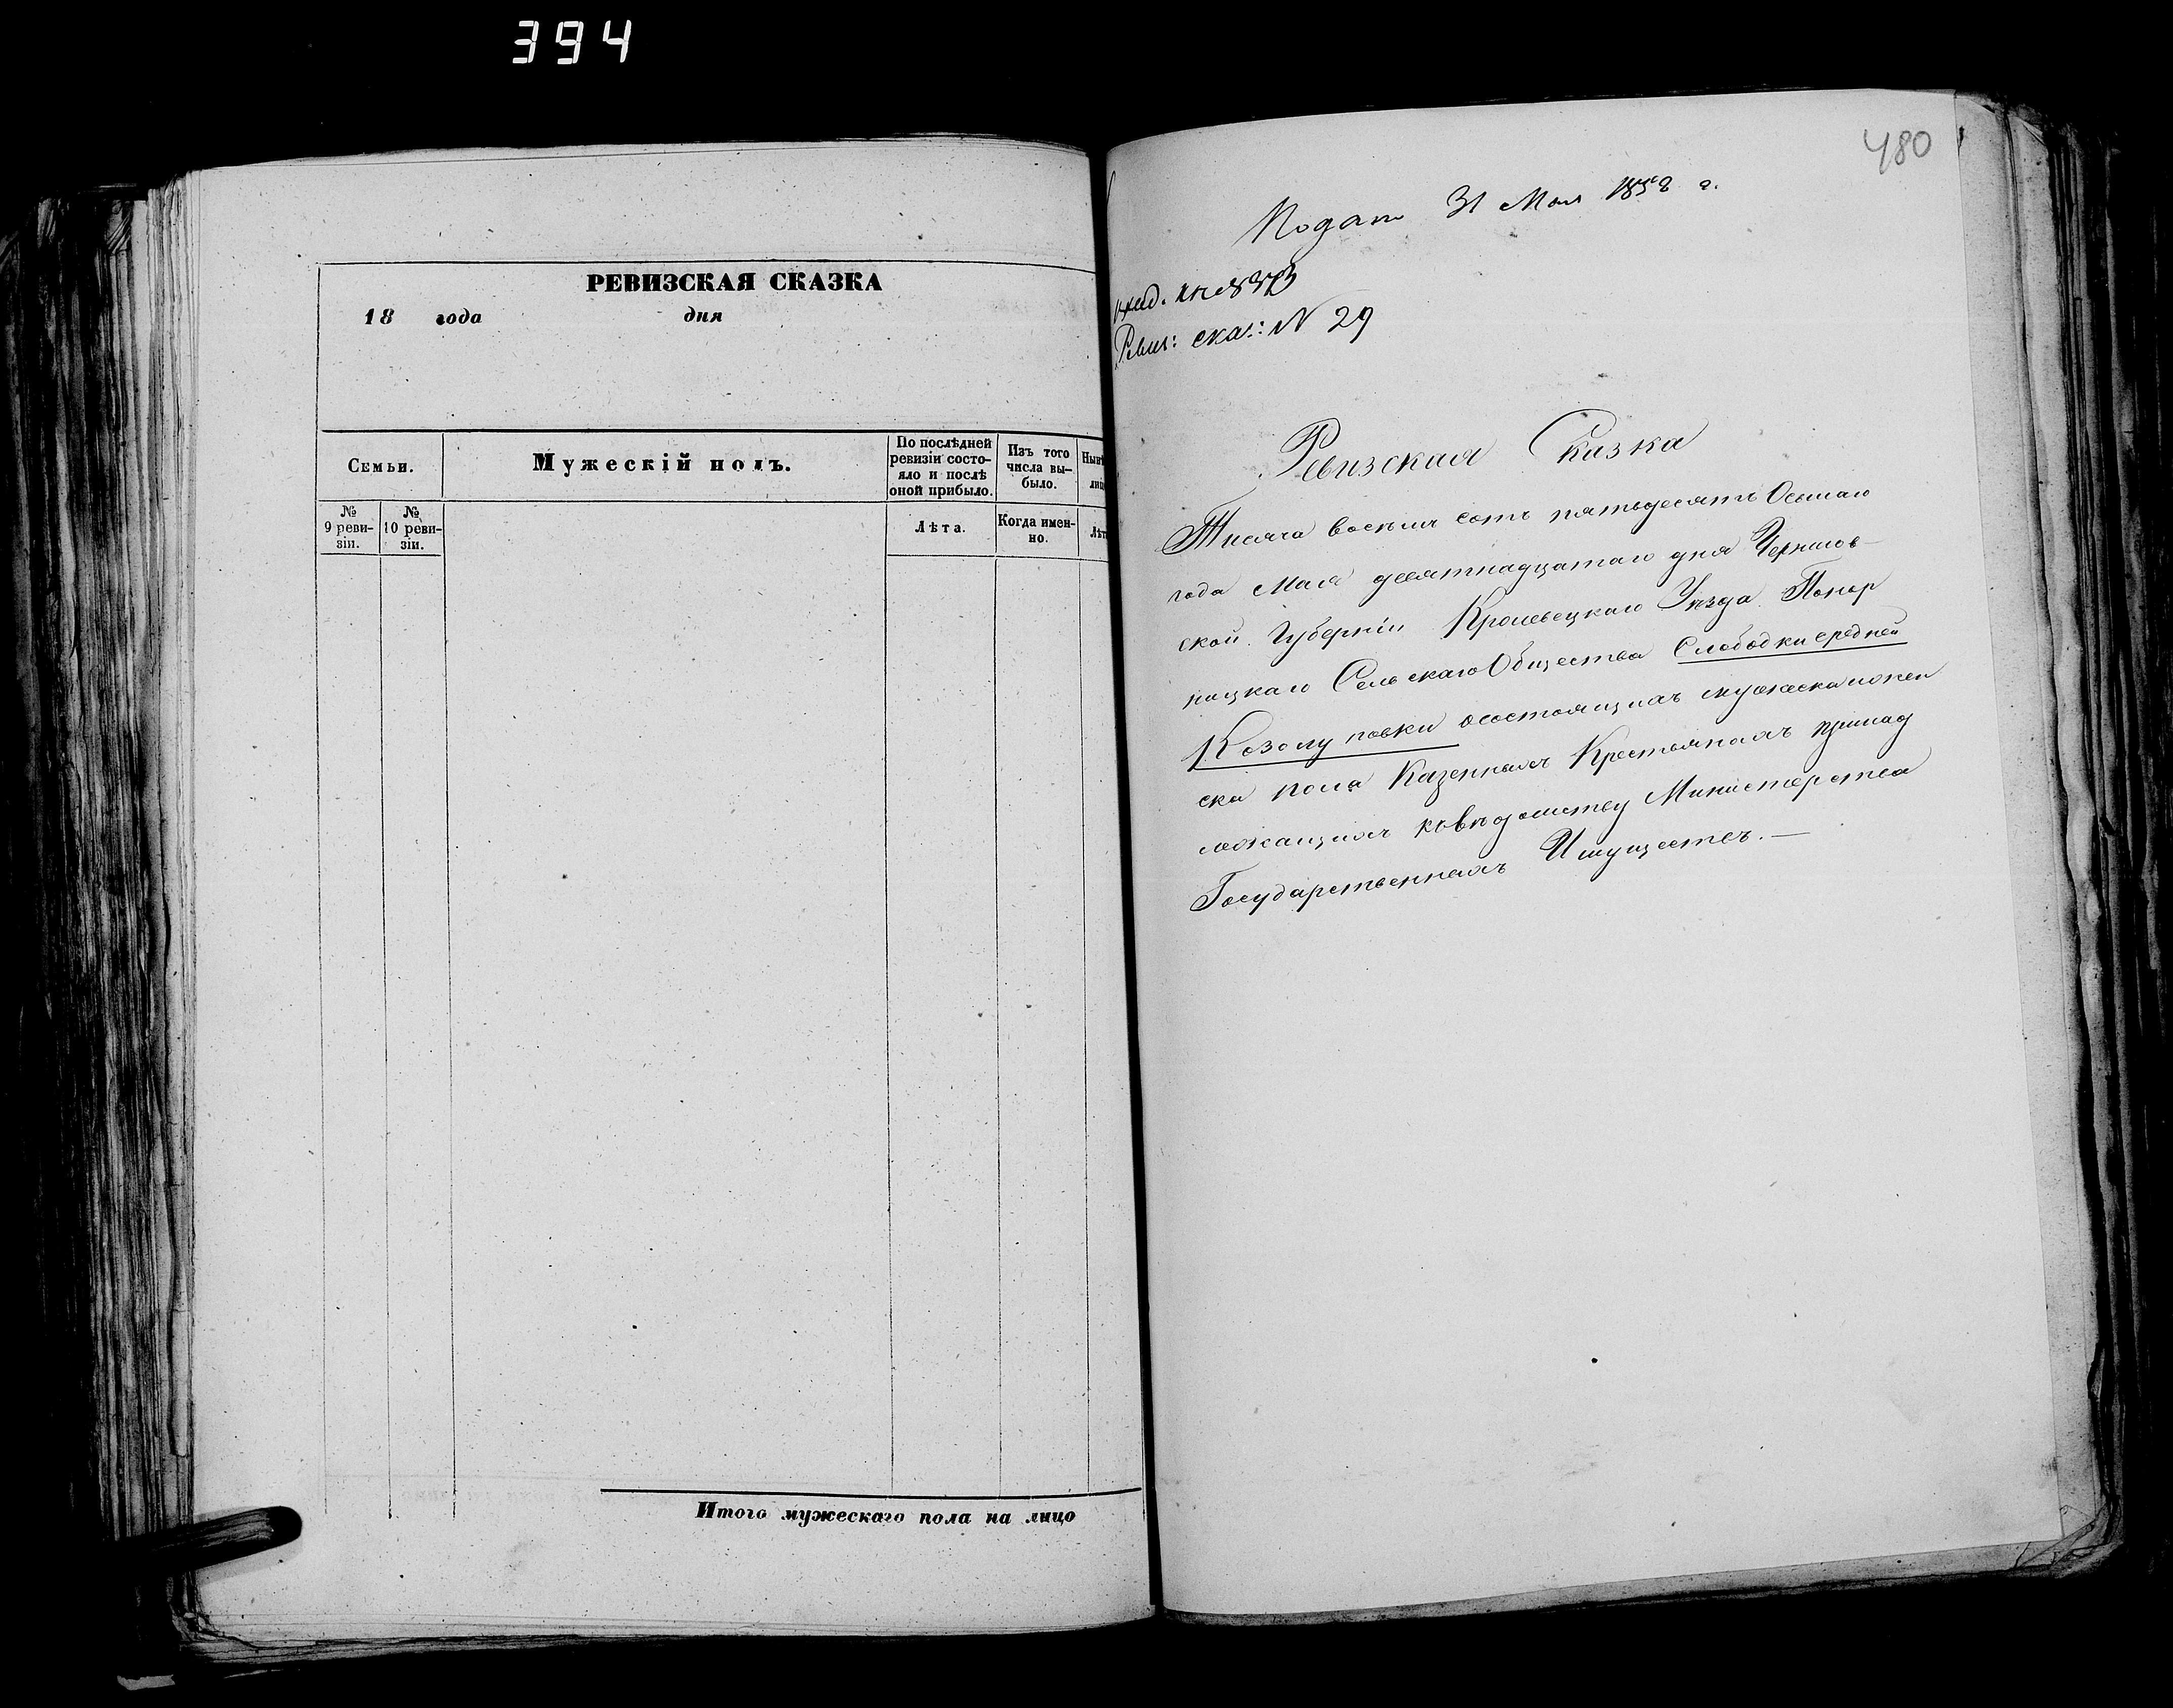 394
РЕВИЗСКАЯ СКАЗКА
18 года дня
Семьи.
Мужескій полъ.
По послѣдней ревизіи состо-
яло и послѣ
оной прибыло.
Изъ того
числа вы-
было.
№
9 реви-
зіи.
№
10 реви-
зіи.
Лѣта.
Когда имен-
но.
Итого мужескаго пола на лицо
480
Подан 31 Мая 1858 г.
Ревиз: ска: № 29
Ревизская Сказка
Тисяча восемь сотъ пятьдесятъ Осьмаго
года Мая девятнадцатаго дня Чернигов-
ской Губерніи Кролевецкаго Уезда Понор
ницкаго Сельскаго Общества Слободки средней
Козолуповки осостоящихъ мужеска и жен
ска пола Казенныхъ Крестьянахъ принад
лежащихъ къ ведомству Министерства
Государственныхъ Имуществъ. —